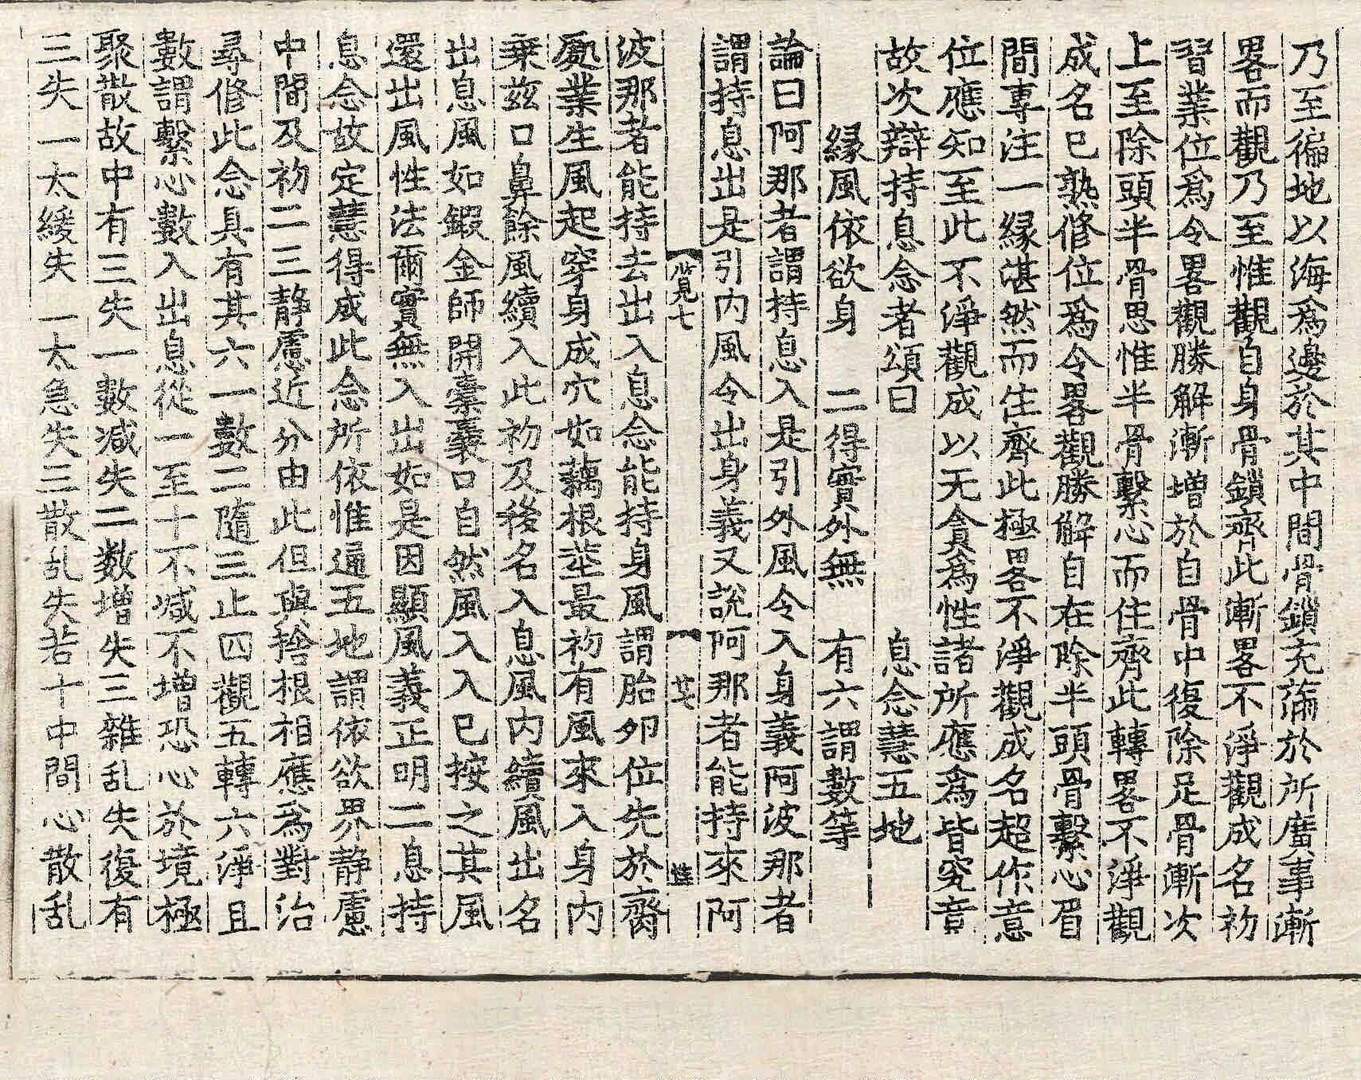 乃至徧地以海爲邊於其中間骨鎖充滿於所廣事漸
畧而觀乃至惟觀自身骨鎖齊此漸畧不淨觀成名初
習業位爲令畧觀勝解漸增於自骨中復除足骨漸次
上至除頭半骨思惟半骨繫心而住齊此轉畧不淨觀
成名已熟修位爲令畧觀勝解自在除半頭骨繫心眉
間專注一縁湛然而住齊此極畧不淨觀成名超作意
位應知至此不淨觀成以无貪爲性諸所應爲皆究竟
故次辯持息念者頌曰 息念慧五地
縁風依欲身 二得實外無 有六謂數等
論曰阿那者謂持息入是引外風令入身義阿波那者
謂持息出是引内風令出身義又說阿那者能持來阿
背見七 廿七
波那者能持去出入息念能持身風謂胎夘位先於齎
處業生風起穿身成穴如藕根莖最初有風來入身内
乗兹口鼻餘風續入此初及後名入息風内續風出名
出息風如鍜金師開橐囊口自然風入入已按之其風
還出風性法爾實無入出如是因顯風義正明二息持
息念故定慧得成此念所依惟通五地謂依欲界静慮
中間及初二三静慮近分由此但與捨根相應爲對治
尋修此念具有其六一數二隨三止四觀五轉六淨且
數謂繫心數入出息從一至十不減不增恐心於境極
聚散故中有三失一數減失二数增失三雜乱失復有
三失一太緩失一太急失三散乱失若十中間心散乱